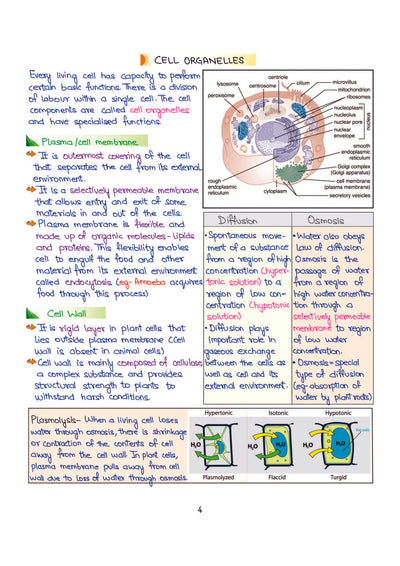 CELL ORGANELLES
Every living cell has capacity to perform
certain basic functions. There is a division
of labour within a single cell. The cell
components are called cell organelles
and have specialised functions.
Plasma/cell membrane
It is outermost covering of the cell
that separates the cell from its external
environment.
It is a selectively permeable membrane
that allows entry and exit of some
materials in and out of the cells.
Plasma membrane is flexible and
made up of organic molecules - lipids
and proteins. This flexibility enables
cell to engulf the food and other
material from its external environment
called endocytosis (eg- Amoeba acquires
food through this process)
Cell Wall
It is rigid layer in plant cells that
lies outside plasma membrane (Cell
wall is absent in animal cells)
Cell wall is mainly composed of cellulose,
a complex substance and provides
structural strength to plants to
withstand harsh conditions.
centriole
lysosome
centrosome
cilium
microvilli
peroxisome
mitochondrion
ribosomes
nucleoplasm
nucleolus
nuclear pore
nuclear
envelope
nucleus
smooth
endoplasmic
reticulum
Golgi complex
(Golgi apparatus)
cell membrane
(plasma membrane)
secretory vesicles
rough
endoplasmic
reticulum
cytoplasm
Diffusion
• Spontaneous move-
ment of a substance
from a region of high
concentration (hyper-
tonic solution) to a
region of low con-
centration (hypotonic
solution)
• Diffusion plays
important role in
gaseous exchange
between the cells as
well as cell and its
external environment.
Osmosis
• Water also obeys
law of diffusion.
Osmosis is the
passage of water
from a region of
high water concentra-
tion through a
selectively permeable
membrane to region
of low water
concentration.
• Osmosis = special
type of diffusion
(eg- absorption of
water by plant roots)
Plasmolysis- When a living cell loses
water through osmosis, there is shrinkage
or contraction of the contents of cell
away from the cell wall. In plant cells,
plasma membrane pulls away from cell
wall due to loss of water through osmosis.
Hypertonic Isotonic Hypotonic
H₂O H₂O H₂O H₂O
Plasmolyzed Flaccid Turgid
4